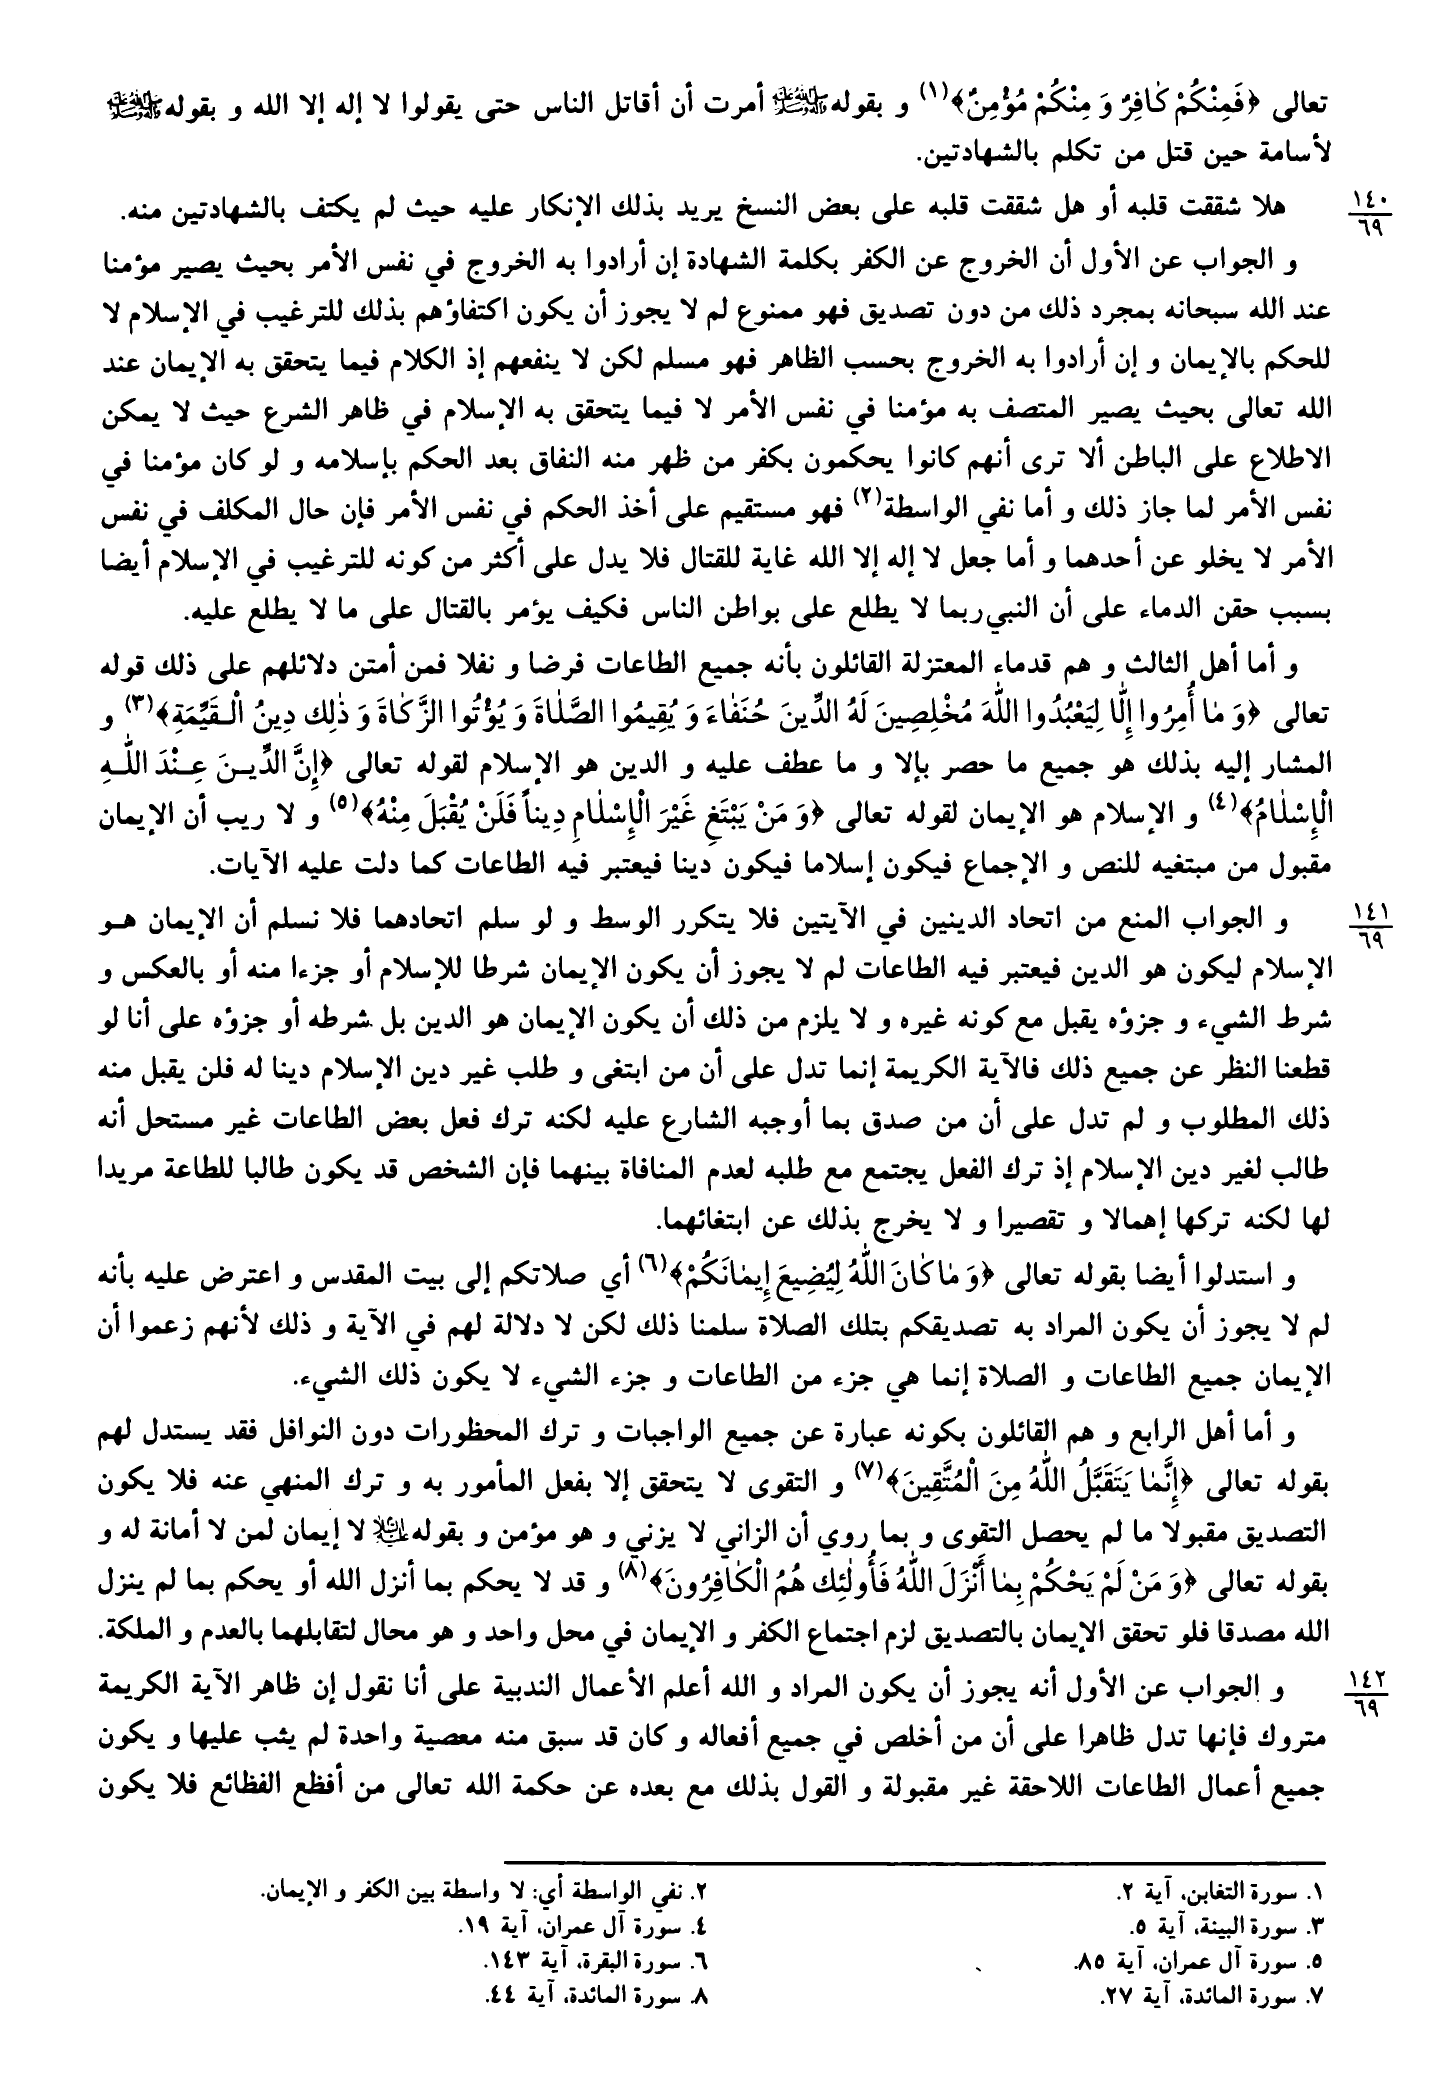 تعالى ﴿فَمِنْكُمْ كٰافِرٌ وَ مِنْكُمْ مُؤْمِنٌ﴾(١) و بقولهﷺ أمرت أن أقاتل الناس حتى يقولوا لا إله إلا الله و بقولهﷺ
لأسامة حين قتل من تكلم بالشهادتين.
١٤٠
٦٩
هلا شققت قلبه أو هل شققت قلبه على بعض النسخ يريد بذلك الإنكار عليه حيث لم يكتف بالشهادتين منه.
و الجواب عن الأول أن الخروج عن الكفر بكلمة الشهادة إن أرادوا به الخروج في نفس الأمر بحيث يصير مؤمنا
عند الله سبحانه بمجرد ذلك من دون تصديق فهو ممنوع لم لا يجوز أن يكون اكتفاؤهم بذلك للترغيب في الإسلام لا
للحكم بالإيمان و إن أرادوا به الخروج بحسب الظاهر فهو مسلم لكن لا ينفعهم إذ الكلام فيما يتحقق به الإيمان عند
الله تعالى بحيث يصير المتصف به مؤمنا في نفس الأمر لا فيما يتحقق به الإسلام في ظاهر الشرع حيث لا يمكن
الاطلاع على الباطن ألا ترى أنهم كانوا يحكمون بكفر من ظهر منه النفاق بعد الحكم بإسلامه و لو كان مؤمنا في
نفس الأمر لما جاز ذلك و أما نفي الواسطة(٢) فهو مستقيم على أخذ الحكم في نفس الأمر فإن حال المكلف في نفس
الأمر لا يخلو عن أحدهما و أما جعل لا إله إلا الله غاية للقتال فلا يدل على أكثر من كونه للترغيب في الإسلام أيضا
بسبب حقن الدماء على أن النبي ربما لا يطلع على بواطن الناس فكيف يؤمر بالقتال على ما لا يطلع عليه.
و أما أهل الثالث و هم قدماء المعتزلة القائلون بأنه جميع الطاعات فرضا و نفلا فمن أمتن دلائلهم على ذلك قوله
تعالى ﴿وَ مٰا أُمِرُوا إِلّٰا لِيَعْبُدُوا اللّٰهَ مُخْلِصِينَ لَهُ الدِّينَ حُنَفٰاءَ وَ يُقِيمُوا الصَّلٰاةَ وَ يُؤْتُوا الزَّكٰاةَ وَ ذٰلِكَ دِينُ الْقَيِّمَةِ﴾(٣) و
المشار إليه بذلك هو جميع ما حصر بإلا و ما عطف عليه و الدين هو الإسلام لقوله تعالى ﴿إِنَّ الدِّينَ عِنْدَ اللّٰهِ
الْإِسْلٰامُ﴾(٤) و الإسلام هو الإيمان لقوله تعالى ﴿وَ مَنْ يَبْتَغِ غَيْرَ الْإِسْلٰامِ دِيناً فَلَنْ يُقْبَلَ مِنْهُ﴾(٥) و لا ريب أن الإيمان
مقبول من مبتغيه للنص و الإجماع فيكون إسلاما فيكون دينا فيعتبر فيه الطاعات كما دلت عليه الآيات.
١٤١
٦٩
و الجواب المنع من اتحاد الدينين في الآيتين فلا يتكرر الوسط و لو سلم اتحادهما فلا نسلم أن الإيمان هو
الإسلام ليكون هو الدين فيعتبر فيه الطاعات لم لا يجوز أن يكون الإيمان شرطا للإسلام أو جزءا منه أو بالعكس و
شرط الشيء و جزؤه يقبل مع كونه غيره و لا يلزم من ذلك أن يكون الإيمان هو الدين بل شرطه أو جزؤه على أنا لو
قطعنا النظر عن جميع ذلك فالآية الكريمة إنما تدل على أن من ابتغى و طلب غير دين الإسلام دينا له فلن يقبل منه
ذلك المطلوب و لم تدل على أن من صدق بما أوجبه الشارع عليه لكنه ترك فعل بعض الطاعات غير مستحل أنه
طالب لغير دين الإسلام إذ ترك الفعل يجتمع مع طلبه لعدم المنافاة بينهما فإن الشخص قد يكون طالبا للطاعة مريدا
لها لكنه تركها إهمالا و تقصيرا و لا يخرج بذلك عن ابتغائهما.
و استدلوا أيضا بقوله تعالى ﴿وَ مٰا كٰانَ اللّٰهُ لِيُضِيعَ إِيمٰانَكُمْ﴾(٦) أي صلاتكم إلى بيت المقدس و اعترض عليه بأنه
لم لا يجوز أن يكون المراد به تصديقكم بتلك الصلاة سلمنا ذلك لكن لا دلالة لهم في الآية و ذلك لأنهم زعموا أن
الإيمان جميع الطاعات و الصلاة إنما هي جزء من الطاعات و جزء الشيء لا يكون ذلك الشيء.
و أما أهل الرابع و هم القائلون بكونه عبارة عن جميع الواجبات و ترك المحظورات دون النوافل فقد يستدل لهم
بقوله تعالى ﴿إِنَّمٰا يَتَقَبَّلُ اللّٰهُ مِنَ الْمُتَّقِينَ﴾(٧) و التقوى لا يتحقق إلا بفعل المأمور به و ترك المنهي عنه فلا يكون
التصديق مقبولا ما لم يحصل التقوى و بما روي أن الزاني لا يزني و هو مؤمن و بقوله لا إيمان لمن لا أمانة له و
بقوله تعالى ﴿وَ مَنْ لَمْ يَحْكُمْ بِمٰا أَنْزَلَ اللّٰهُ فَأُولٰئِكَ هُمُ الْكٰافِرُونَ﴾(٨) و قد لا يحكم بما أنزل الله أو يحكم بما لم ينزل
الله مصدقا فلو تحقق الإيمان بالتصديق لزم اجتماع الكفر و الإيمان في محل واحد و هو محال لتقابلهما بالعدم و الملكة.
١٤٢
٦٩
و الجواب عن الأول أنه يجوز أن يكون المراد و الله أعلم الأعمال الندبية على أنا نقول إن ظاهر الآية الكريمة
متروك فإنها تدل ظاهرا على أن من أخلص في جميع أفعاله و كان قد سبق منه معصية واحدة لم يثب عليها و يكون
جميع أعمال الطاعات اللاحقة غير مقبولة و القول بذلك مع بعده عن حكمة الله تعالى من أفظع الفظائع فلا يكون
١. سورة التغابن، آية ٢.
٢. نفي الواسطة أي: لا واسطة بين الكفر و الإيمان.
٣. سورة البينة، آية ٥.
٤. سورة آل عمران، آية ١٩.
٥. سورة آل عمران، آية ٨٥.
٦. سورة البقرة، آية ١٤٣.
٧. سورة المائدة، آية ٢٧.
٨. سورة المائدة، آية ٤٤.